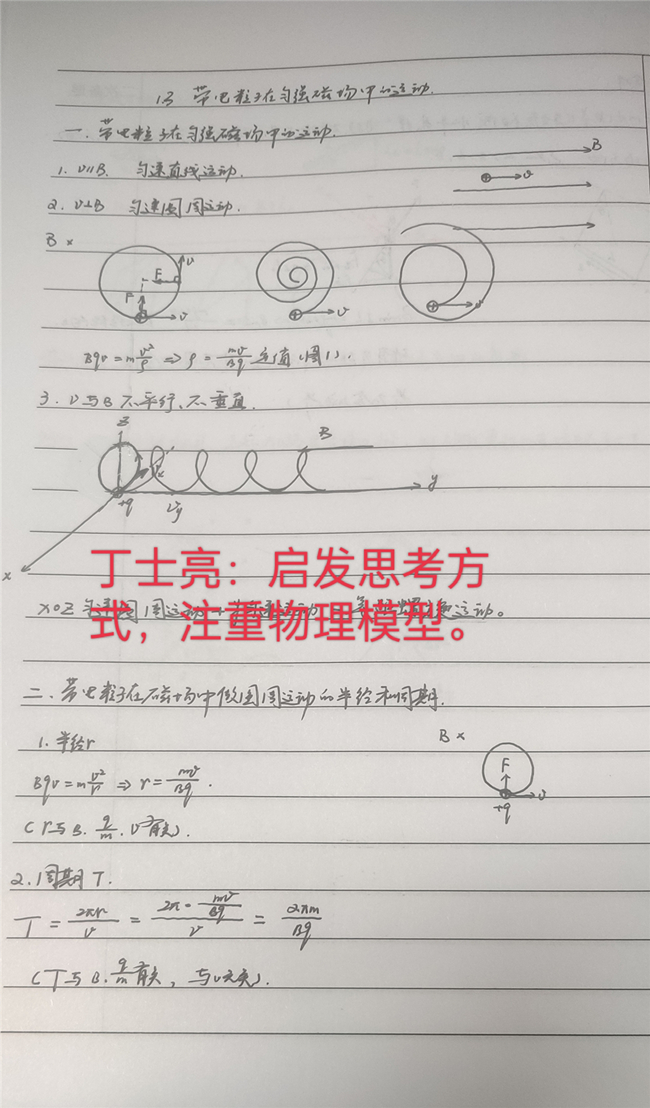 1.3 带电粒子在匀强磁场中的运动.
一. 带电粒子在匀强磁场中的运动.
1. v∥B. 匀速直线运动.
B
v
2. v⊥B 匀速圆周运动.
B ×
v
F
F
v
v
v
Bqv = m v²/ρ ⇒ ρ = mv/Bq 定值 (图1).
3. v与B不平行、不垂直.
z
B
y
+q
vy
x
丁士亮：启发思考方
式，注重物理模型。
xoz 匀速圆周运动 运动。
二. 带电粒子在磁场中做圆周运动的半径和周期.
1. 半径r
B ×
F
v
+q
Bqv = m v²/r ⇒ r = mv/Bq .
( r与B. q/m. v有关).
2. 周期T.
T = 2πr/v = 2π· mv/Bq / v = 2πm/Bq
(T与B. q/m 有关, 与v无关).